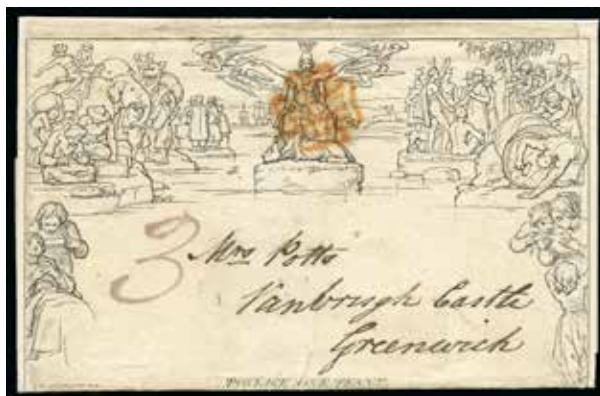 3
Mrs Potts
Vanbrugh Castle
Greenwich
POSTAGE ONE PENNY.